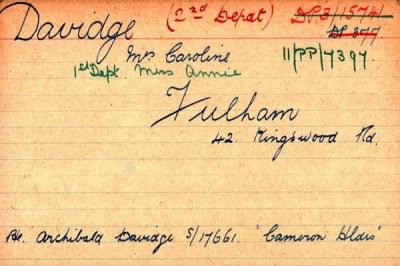 Davidge (2nd Depat) DP3/15741
DP 377
Mrs Caroline 11/PP/7397.
1st Dept. Miss Annie
Fulham
42. Kingswood Rd.
Pte. Archibald Davidge S/17661. "Cameron Hldrs"